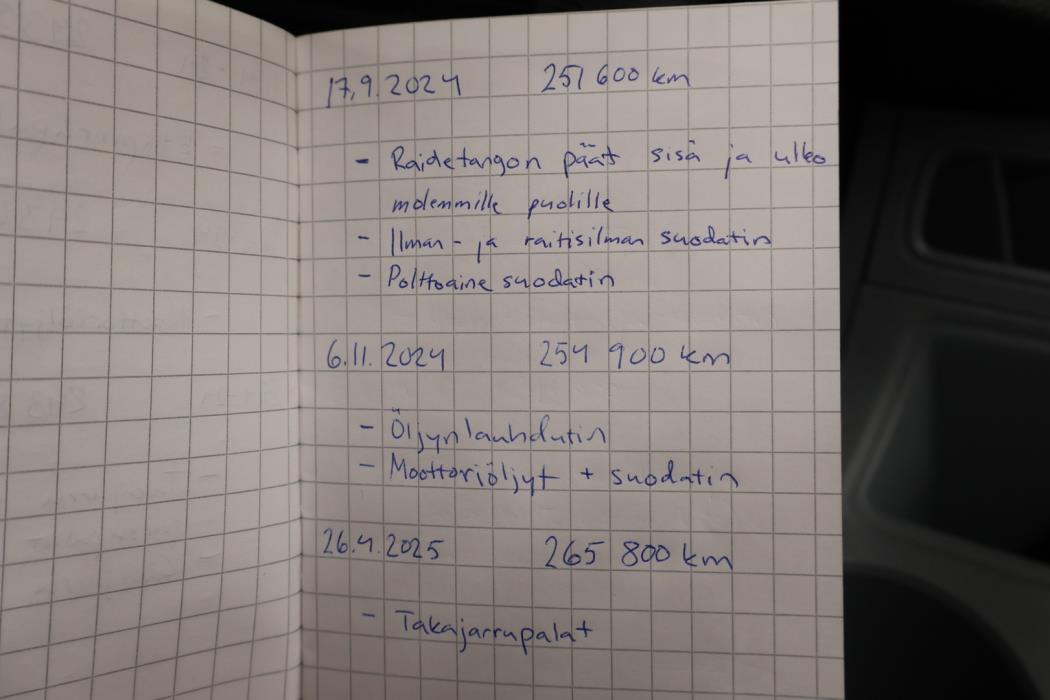 17.9.2024 251 600 km
- Raidetangon päät sisä ja ulko
molemmille puolille
- Ilman- ja raitisilman suodatin
- Polttoaine suodatin
6.11.2024 254 900 km
- Öljynlauhdutin
- Moottoriöljyt + suodatin
26.4.2025 265 800 km
- Takajarrupalat